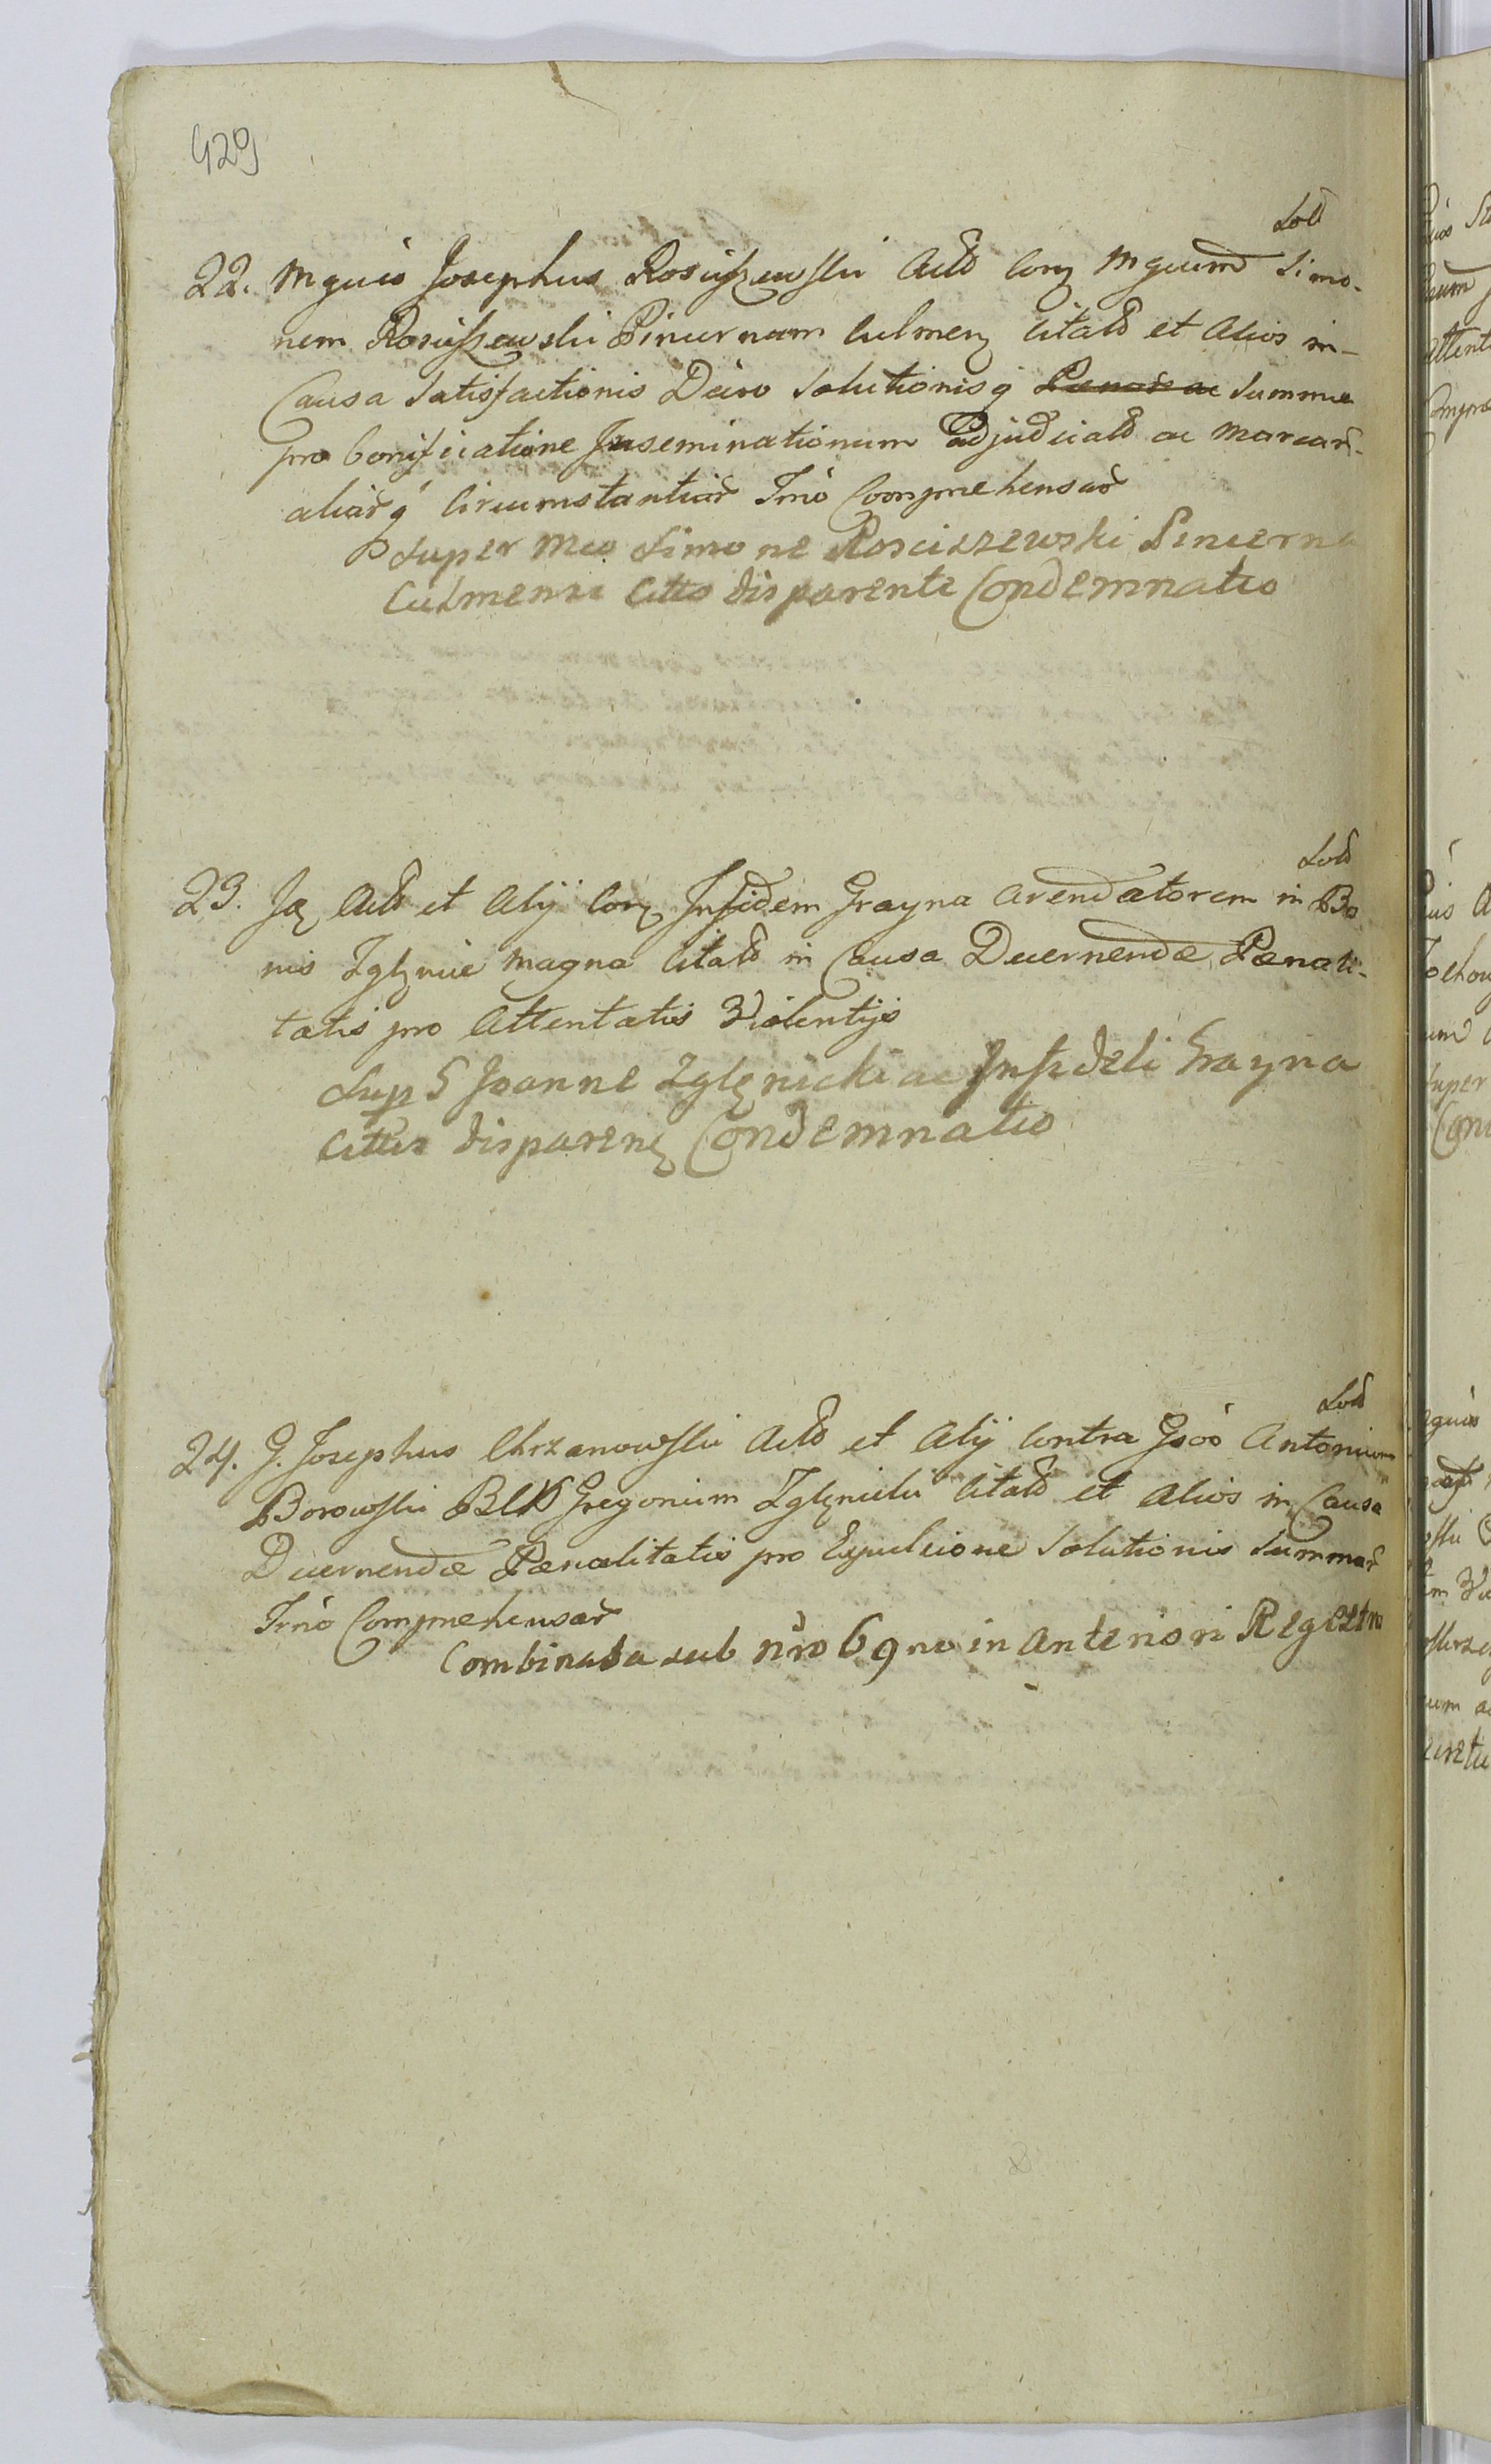 429
Sol
22. Mgcus Josephus Rosciszewski Actd Conz Mgcum Simo-
nem Rosciszewski Pincernam Culmenz Citatd et Alios in
Causa Satisfactionis Dcivo Solutionisq Paenar ac Summae
pro bonificatione Inseminationum Adjudicatd ac Marcar
aliarq Circumstantiar Trno Comprehensar
Super Mco Simone Rosciszewski Pincerna
Culmensi Citto disparente Condemnatio
Sol
23. Jz Actd et Alij Conz Infidem Grayna Arendatorem in Bo
nis Zglznie Magna Citatd in Causa Decernendae Paenali-
tatis pro Attentatis Violentijs
Sup G Joanne Zglenicki ac Infideli Grayna
Cittis disparenz Condemnatio
Sol
24. G. Josephus Chrzanowski Actd et Alij Contra Gsos Antonium
Borowski BCK Gregorium Zglenicki Citatd et Alios in Causa
Decernendae Paenalitatis pro Expulsione Solutionis Summar
Trno Comprehensar
Combinata sub nro 69no in Anteriori Regestro